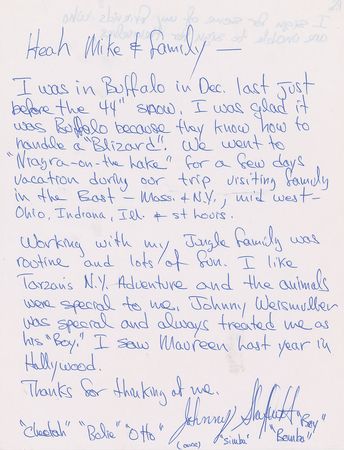 Heah Mike & family —
I was in Buffalo in Dec. last just
before the 44" snow. I was glad it
was Buffalo because they know how to
handle a "Blizard". We went to
"Niagra-on-the Lake" for a few days
vacation during our trip visiting family
in the East – Mass. & N.Y., mid west –
Ohio, Indiana, Ill. & St Louis.
Working with my Jungle family was
routine and lots of fun. I like
Tarzan's N.Y. Adventure and the animals
were special to me. Johnny Weismuller
was special and always treated me as
his "Boy." I saw Maureen last year in
Hollywood.
Thanks for thinking of me.
Johnny Sheffield "Boy"
"Cheetah" "Balie" "Otto" "simba" "Bomba"